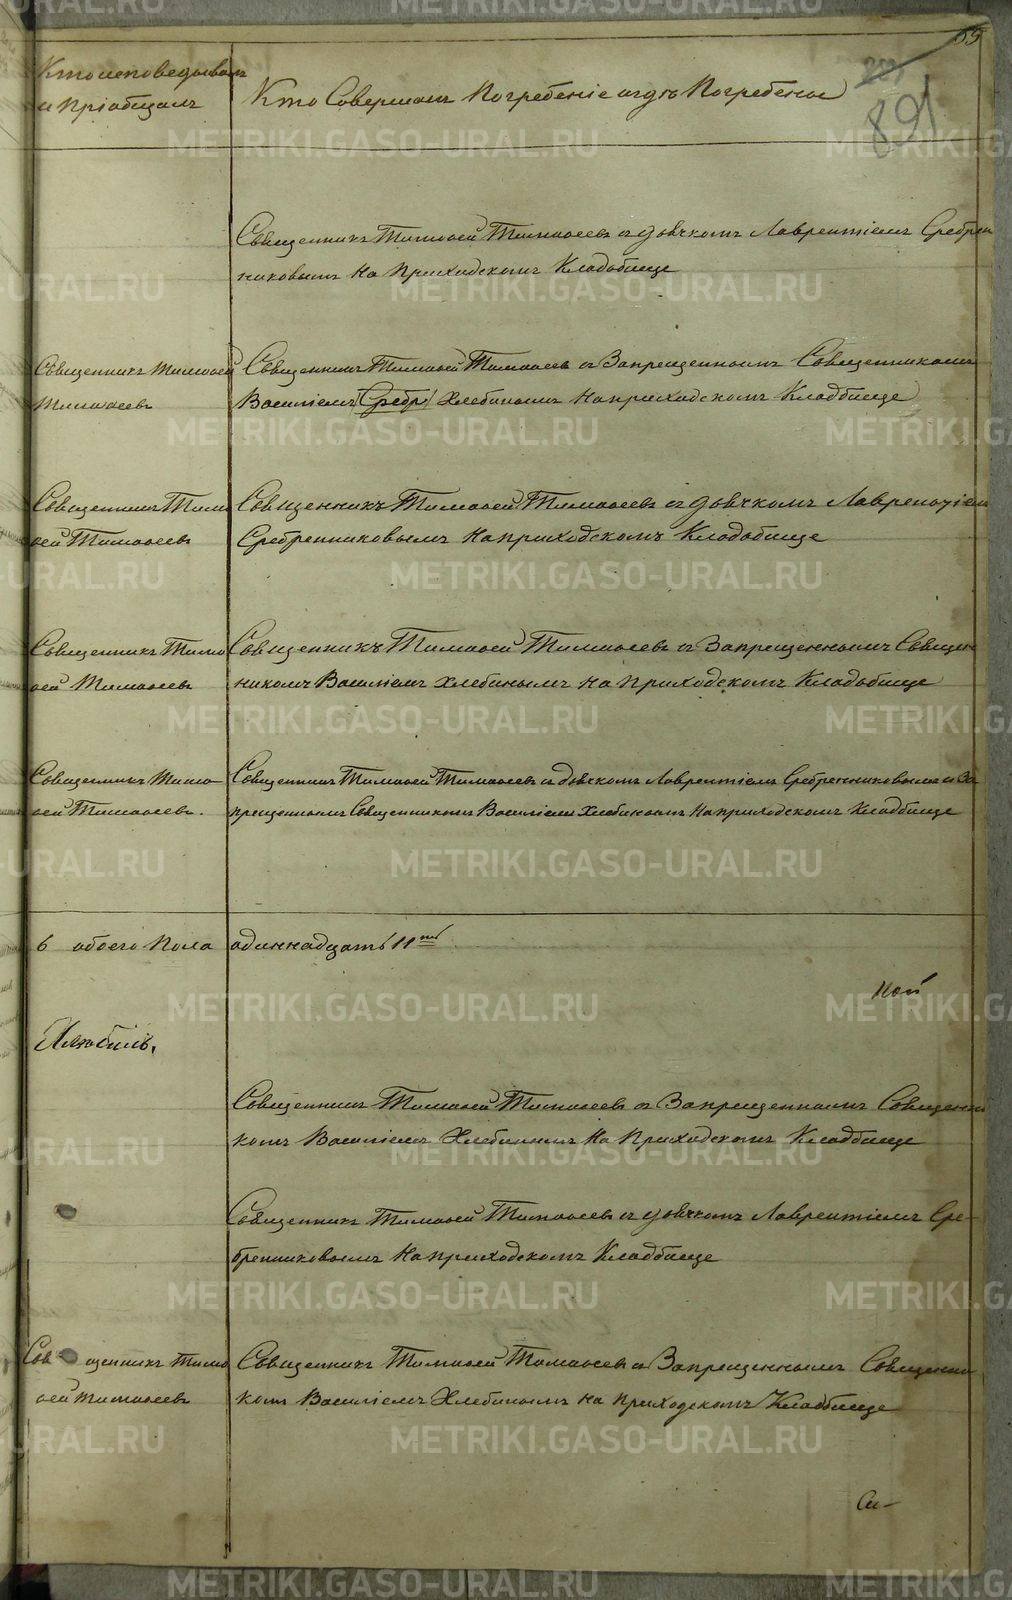 59
891
Кто исповедывалъ
и Пріобщалъ
Кто Совершалъ Погребеніе и гдѣ Погребены
Священникъ Тимоѳей Тимоѳеевъ съ дьячкомъ Лаврентіемъ Сребрен
никовымъ на Приходскомъ Кладбище
Священникъ Тимоѳей
Тимоѳеевъ
Священникъ Тимоѳей Тимоѳеевъ съ Запрещеннымъ Священникомъ
Василіемъ (Сребр) Хлебинымъ на приходскомъ Кладбище
Священникъ Тимо
ѳей Тимоѳеевъ
Священникъ Тимоѳей Тимоѳеевъ съ дьячкомъ Лаврентіемъ
Сребренниковымъ на приходскомъ Кладбище
Священникъ Тимо
ѳей Тимоѳеевъ
Священникъ Тимоѳей Тимоѳеевъ съ Запрещеннымъ Священ
никомъ Василіемъ Хлебинымъ на Приходскомъ Кладбище
Священникъ Тимо
ѳей Тимоѳеевъ.
Священникъ Тимоѳей Тимоѳеевъ съ дьячкомъ Лаврентіемъ Сребренниковымъ и За
прещеннымъ Священникомъ Василіемъ Хлебинымъ на приходскомъ Кладбище
6 обоего Пола
одиннадцать 11ть
Священникъ Тимоѳей Тимоѳеевъ съ Запрещеннымъ Священни
комъ Василіемъ Хлебинымъ на Приходскомъ Кладбище
Священникъ Тимоѳей Тимоѳеевъ съ дьячкомъ Лаврентіемъ Сре-
бренниковымъ на приходскомъ Кладбище
Священникъ Тимо
ѳей Тимоѳеевъ
Священникъ Тимоѳей Тимоѳеевъ съ Запрещеннымъ Священни
комъ Василіемъ Хлебинымъ на приходскомъ Кладбище
METRIKI.GASO-URAL.RU